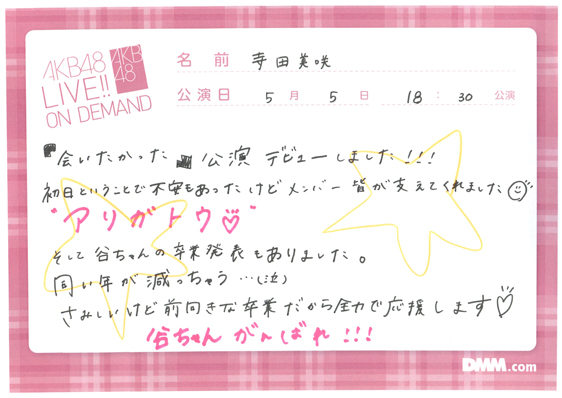 AKB48
LIVE!!
ON DEMAND
AKB
48
名前 寺田美咲
公演日 5月 5日 18:30 公演
『会いたかった』公演 デビューしました!!!
初日ということで不安もあったけどメンバー皆が支えてくれました
"アリガトウ♡"
そして谷ちゃんの卒業発表もありました。
同い年が減っちゃう…(泣)
さみしいけど前向きな卒業だから全力で応援します♡
谷ちゃんがんばれ!!!
DMM.com